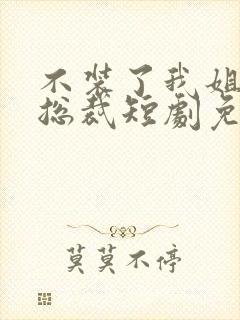 不装了我姐
总裁短劇免
莫莫不停